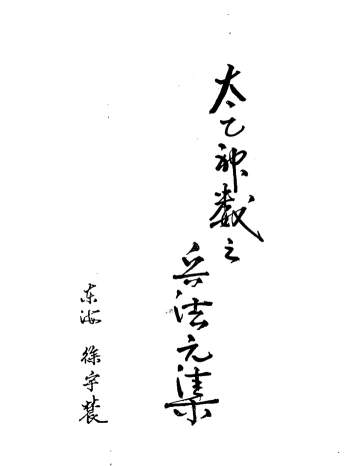 太乙神数之
兵法元集
东海 徐宇𬞟